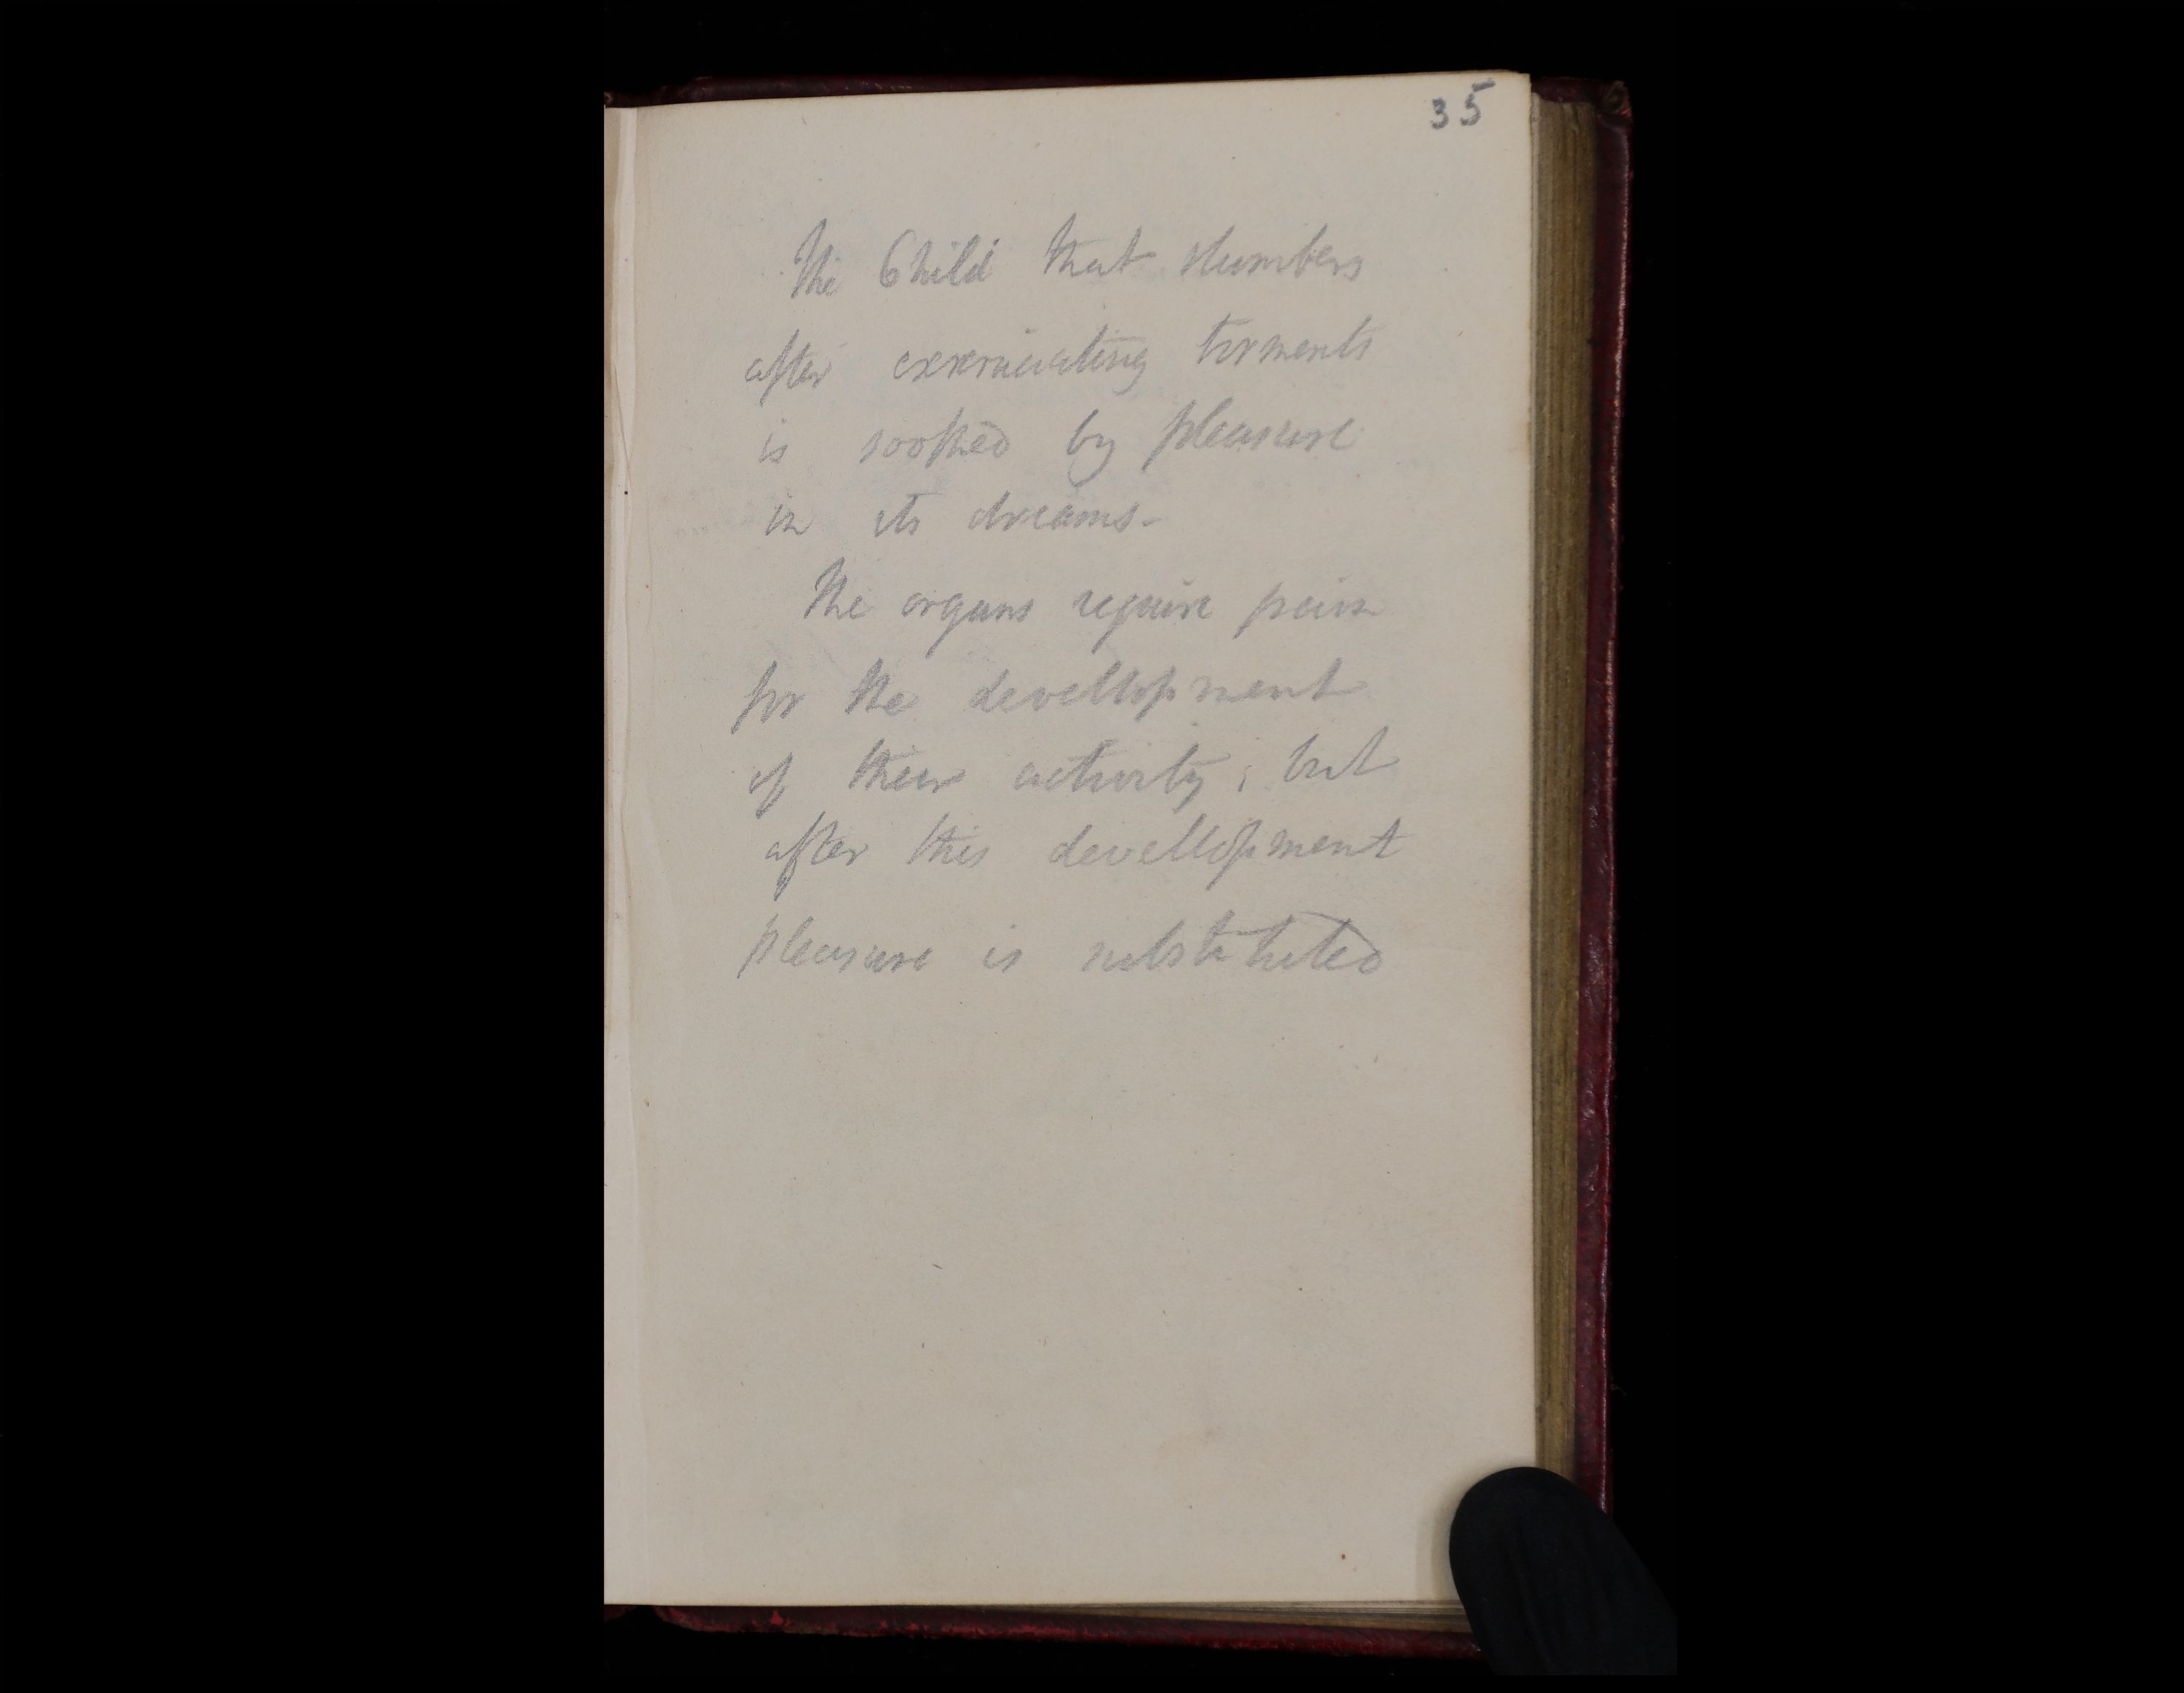 35
The Child that slumbers
after excruciating torments
is soothed by pleasure
in its dreams-
The organs require pain
for the devellopment
of their activity; but
after this devellopment
pleasure is substituted